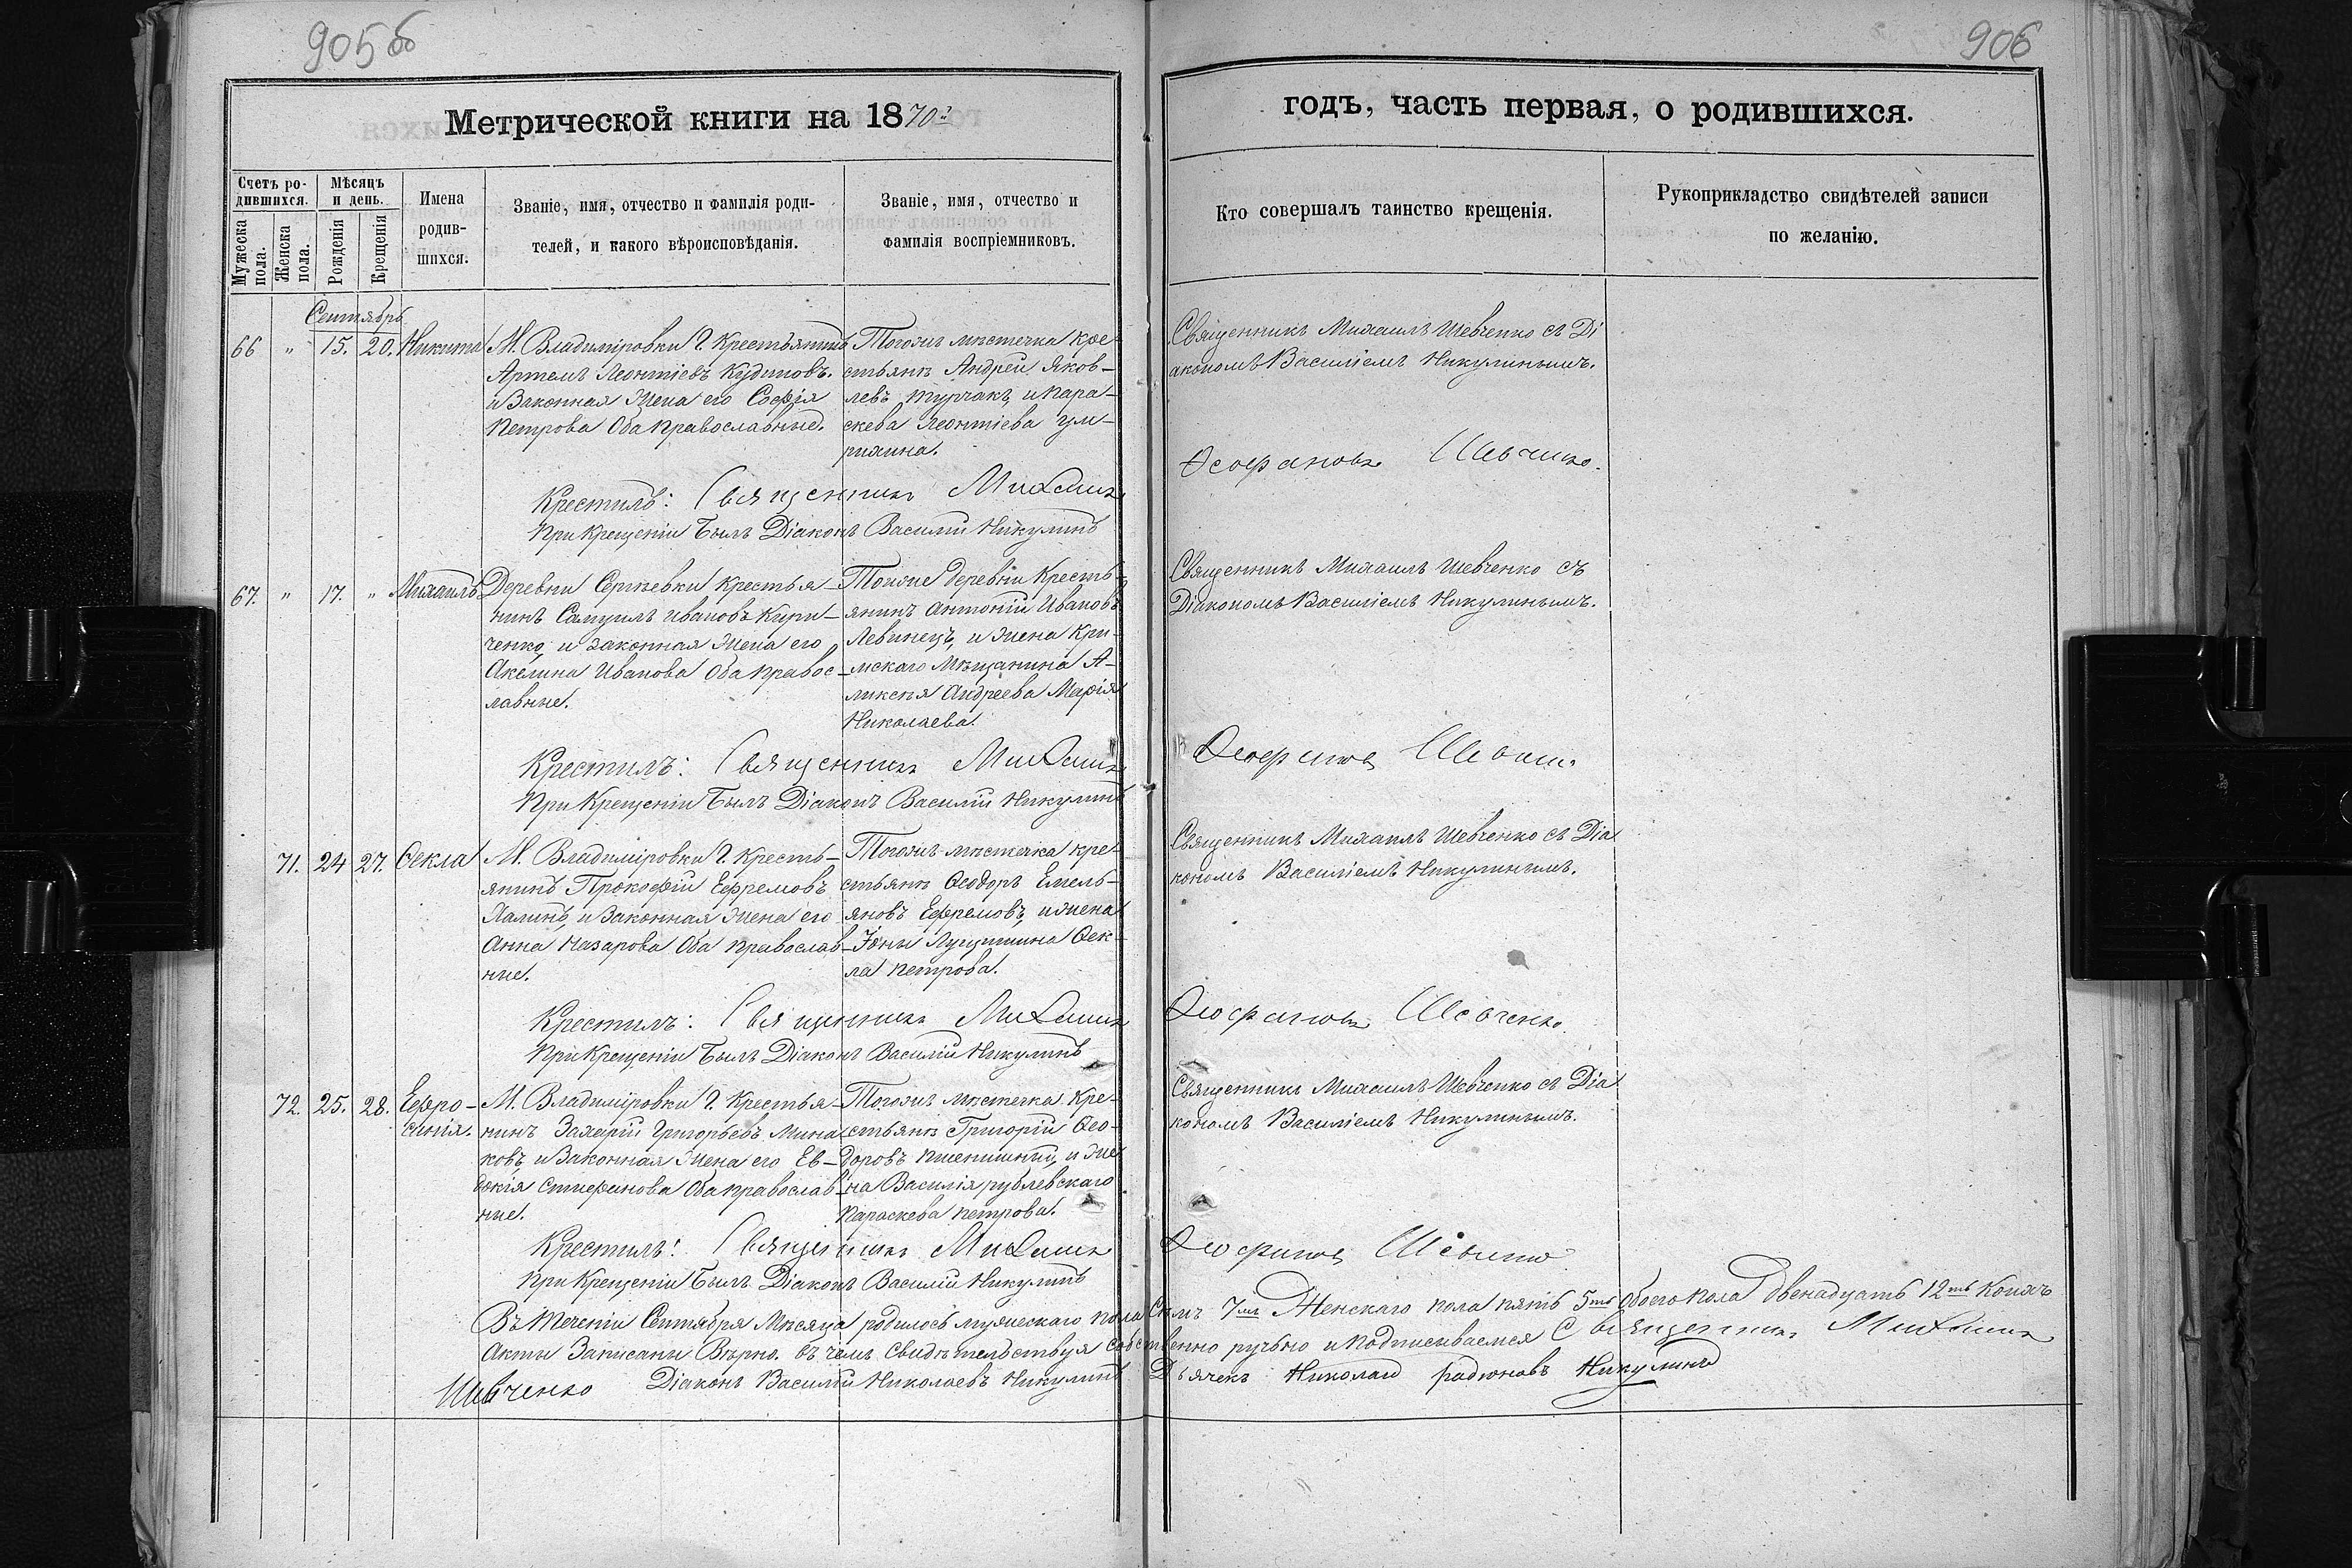 905 об
906
Метрической книги на 1870й
годъ, часть первая, о родившихся.
Счетъ ро-
дившихся.
Мужеска
пола.
Женска
пола.
Мѣсяцъ
и день.
Рожденія
Крещенія
Имена
родив-
шихся.
Званіе, имя, отчество и фамилія роди-
телей, и какого вѣроисповѣданія.
Званіе, имя, отчество и
фамилія воспріемниковъ.
Кто совершалъ таинство крещенія.
Рукоприкладство свидѣтелей записи
по желанію.
Сентябрь
66 " 15. 20. Никита
М. Владиміровки Г. Крестьянинъ
Артемъ Леонтіевъ Кудиновъ.
и Законная Жена его Софія
Петрова Оба Православные.
Тогожъ мѣстечка Кре-
стьянъ Андрей Яков-
левъ Турчакъ, и Пара-
скева Леонтіева
Священникъ Михаилъ Шевченко съ Ді
акономъ Василіемъ Никулинымъ.
Крестилъ: Священникъ Михаилъ
Ѳеофановъ Шевченко.
При Крещеніи Былъ Діаконъ Василій Никулинъ
67. " 17. " Михаилъ
Деревни Сергѣевки Крестья-
нинъ Самуилъ Ивановъ Кири-
ченко, и законная Жена его
Акелина Иванова Оба Правос-
лавные.
Тойже деревни Кресть-
янинъ Антоній Ивановъ
Левинецъ, и Жена Кри-
мскаго Мѣщанина А-
лексѣя Андреева Марія
Николаева.
Священникъ Михаилъ Шевченко съ
Діакономъ Василіемъ Никулинымъ.
Крестилъ: Священникъ Михаилъ
Ѳеофановъ Шевченко
При Крещеніи Былъ Діаконъ Василій Никулинъ
71. 24 27. Ѳекла
М. Владиміровки Г. Кресть-
янинъ Прокофій Ефремовъ
Халинъ, и Законная Жена его
Анна Назарова Оба Православ-
ные.
Тогожъ мѣстечка кре-
стьянъ Ѳеодоръ Емель-
яновъ Ефремовъ, и жена
Іоны Ѳек-
ла Петрова.
Священникъ Михаилъ Шевченко съ Діа
кономъ Василіемъ Никулинымъ.
Крестилъ: Священникъ Михаилъ
Ѳеофановъ Шевченко.
При Крещеніи Былъ Діаконъ Василій Никулинъ
72. 25. 28. Ефро-
синія.
М. Владиміровки Г. Крестья-
нинъ Захарій Григорьевъ Мина-
ковъ, и Законная Жена его Ев-
докія Стефанова Оба Православ-
ные.
Тогожъ мѣстечка Кре-
стьянъ Григорій Ѳео-
доровъ Пшенишный, и же
на Василія Рублевскаго
Параскева Петрова.
Священникъ Михаилъ Шевченко съ Діа
кономъ Василіемъ Никулинымъ.
Крестилъ: Священникъ Михаилъ
Ѳеофановъ Шевченко
При Крещеніи Былъ Діаконъ Василій Никулинъ
Въ Теченіи Сентября Мѣсяца родилось мужескаго пола Семъ 7мъ Женскаго пола пять 5ть Обоего пола Двенадцать 12ть Коихъ
Акты Записаны Вѣрно. въ чемъ Свидѣтельствуя Собственно ручью и Подписываемся Священникъ Михаилъ
Шевченко Діаконъ Василій Николаевъ Никулинъ Дьячекъ Николай Радионовъ Никулинъ